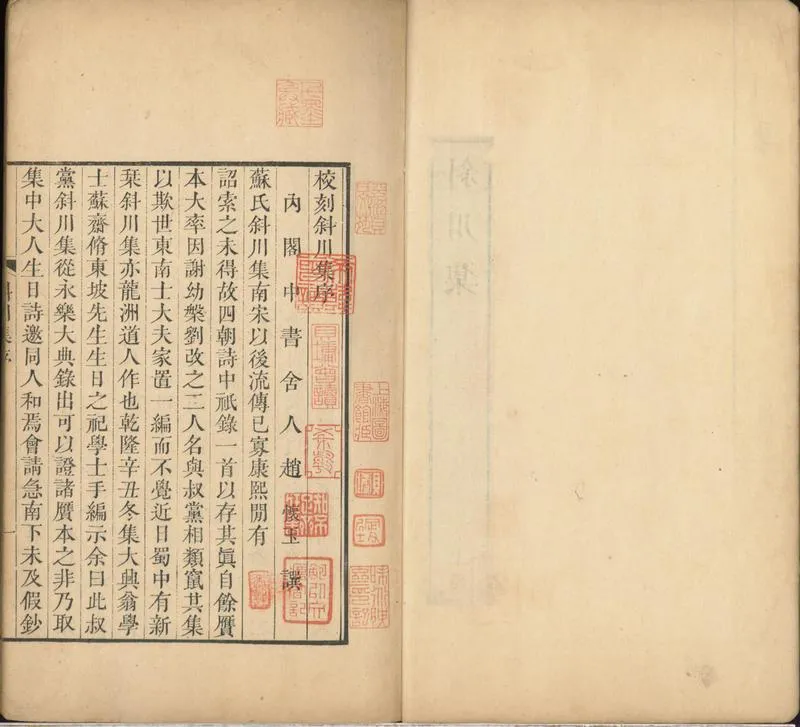 斜川集
上海圖
書館藏
校刻斜川集序
內閣中書舍人趙懷玉譔
蘇氏斜川集南宋以後流傳已寡康熙閒有
詔索之未得故四朝詩中祇錄一首以存其眞自餘贋
本大率因謝幼槃劉改之二人名與叔黨相類竄其集
以欺世東南士大夫家置一編而不覺近日蜀中有新
栞斜川集亦龍洲道人作也乾隆辛丑冬集大典翁學
士蘇齋脩東坡先生生日之祀學士手編示余曰此叔
黨斜川集從永樂大典錄出可以證諸贋本之非乃取
集中大人生日詩邀同人和焉會請急南下未及假鈔
斜川集序
一